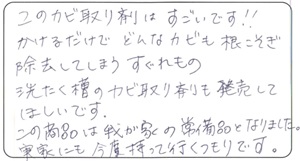 このカビ取り剤は すごいです!!
かけるだけで どんなカビも 根こそぎ
除去してしまう すぐれもの
洗たく槽のカビ取り剤も 発売して
ほしいです.
この商品は我が家の常備品となりました。
実家にも 今度 持って行くつもりです。